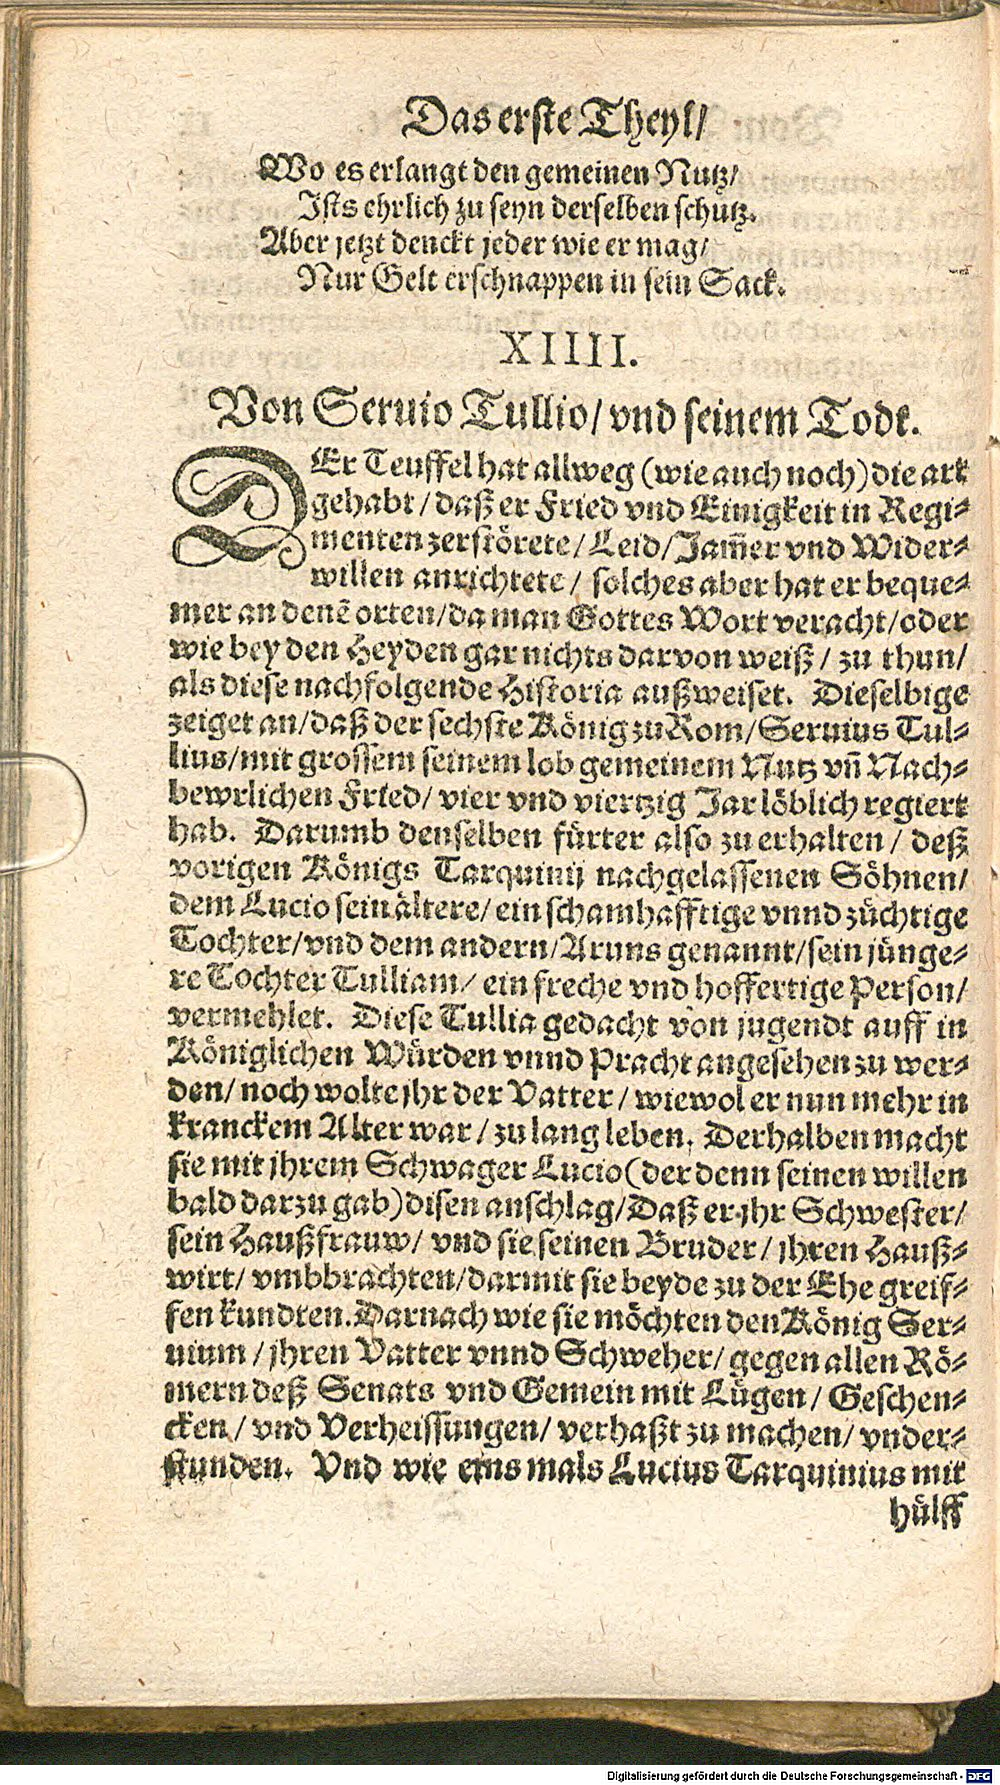 Das erste Theyl/
Wo es erlangt den gemeinen Nutz/
Ists ehrlich zu seyn derselben schütz.
Aber jetzt denckt jeder wie er mag/
Nur Gelt erschnappen in sein Sack.
XIIII.
Von Seruio Tullio/ vnd seinem Todt.
DEr Teuffel hat allweg (wie auch noch) die art
gehabt / daß er Fried vnd Einigkeit in Regi-
menten zerstörete/ Leid/ Jam̃er vnd Wider-
willen anrichtete / solches aber hat er beque-
mer an denẽ orten/ da man Gottes Wort veracht/ oder
wie bey den Heyden gar nichts darvon weiß / zu thun/
als diese nachfolgende Historia außweiset. Dieselbige
zeiget an/ daß der sechste König zu Rom/ Seruius Tul-
lius/ mit grossem seinem lob gemeinem Nutz vñ Nach-
bewrlichen Fried/ vier vnd viertzig Jar löblich regiert
hab. Darumb denselben fürter also zu erhalten / deß
vorigen Königs Tarquinij nachgelassenen Söhnen/
dem Lucio sein ältere/ ein schamhafftige vnnd züchtige
Tochter/ vnd dem andern/ Aruns genannt/ sein jünge-
re Tochter Tulliam/ ein freche vnd hoffertige Person/
vermehlet. Diese Tullia gedacht von jugendt auff in
Königlichen Würden vnnd Pracht angesehen zu wer-
den/ noch wolte jhr der Vatter / wiewol er nun mehr in
kranckem Alter war / zu lang leben. Derhalben macht
sie mit jhrem Schwager Lucio (der denn seinen willen
bald darzu gab) disen anschlag/ Daß er jhr Schwester/
sein Haußfrauw/ vnd sie seinen Bruder / jhren Hauß-
wirt/ vmbbrachten/ darmit sie beyde zu der Ehe greif-
fen kundten. Darnach wie sie möchten den König Ser-
uium / jhren Vatter vnnd Schweher/ gegen allen Rö-
mern deß Senats vnd Gemein mit Lügen / Geschen-
cken / vnd Verheissungen/ verhaßt zu machen/ vnder-
stunden. Vnd wie eins mals Lucius Tarquinius mit
hülff
Digitalisierung gefördert durch die Deutsche Forschungsgemeinschaft - DFG